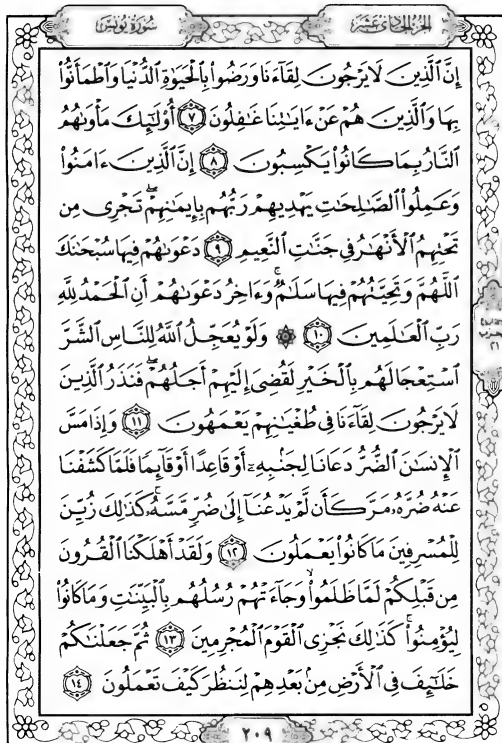 سُورَةُ يُونُسَ
الجُزْءُ الحَادِي عَشَرَ
إِنَّ ٱلَّذِينَ لَا يَرْجُونَ لِقَآءَنَا وَرَضُوا۟ بِٱلْحَيَوٰةِ ٱلدُّنْيَا وَٱطْمَأَنُّوا۟
بِهَا وَٱلَّذِينَ هُمْ عَنْ ءَايَٰتِنَا غَٰفِلُونَ ٧ أُو۟لَٰٓئِكَ مَأْوَىٰهُمُ
ٱلنَّارُ بِمَا كَانُوا۟ يَكْسِبُونَ ٨ إِنَّ ٱلَّذِينَ ءَامَنُوا۟
وَعَمِلُوا۟ ٱلصَّٰلِحَٰتِ يَهْدِيهِمْ رَبُّهُم بِإِيمَٰنِهِمْ ۖ تَجْرِى مِن
تَحْتِهِمُ ٱلْأَنْهَٰرُ فِى جَنَّٰتِ ٱلنَّعِيمِ ٩ دَعْوَىٰهُمْ فِيهَا سُبْحَٰنَكَ
ٱللَّهُمَّ وَتَحِيَّتُهُمْ فِيهَا سَلَٰمٌ ۚ وَءَاخِرُ دَعْوَىٰهُمْ أَنِ ٱلْحَمْدُ لِلَّهِ
رَبِّ ٱلْعَٰلَمِينَ ١٠ ۞ وَلَوْ يُعَجِّلُ ٱللَّهُ لِلنَّاسِ ٱلشَّرَّ
ٱسْتِعْجَالَهُم بِٱلْخَيْرِ لَقُضِىَ إِلَيْهِمْ أَجَلُهُمْ ۖ فَنَذَرُ ٱلَّذِينَ
لَا يَرْجُونَ لِقَآءَنَا فِى طُغْيَٰنِهِمْ يَعْمَهُونَ ١١ وَإِذَا مَسَّ
ٱلْإِنسَٰنَ ٱلضُّرُّ دَعَانَا لِجَنۢبِهِۦٓ أَوْ قَاعِدًا أَوْ قَآئِمًا فَلَمَّا كَشَفْنَا
عَنْهُ ضُرَّهُۥ مَرَّ كَأَن لَّمْ يَدْعُنَآ إِلَىٰ ضُرٍّ مَّسَّهُۥ ۚ كَذَٰلِكَ زُيِّنَ
لِلْمُسْرِفِينَ مَا كَانُوا۟ يَعْمَلُونَ ١٢ وَلَقَدْ أَهْلَكْنَا ٱلْقُرُونَ
مِن قَبْلِكُمْ لَمَّا ظَلَمُوا۟ ۙ وَجَآءَتْهُمْ رُسُلُهُم بِٱلْبَيِّنَٰتِ وَمَا كَانُوا۟
لِيُؤْمِنُوا۟ ۚ كَذَٰلِكَ نَجْزِى ٱلْقَوْمَ ٱلْمُجْرِمِينَ ١٣ ثُمَّ جَعَلْنَٰكُمْ
خَلَٰٓئِفَ فِى ٱلْأَرْضِ مِنۢ بَعْدِهِمْ لِنَنظُرَ كَيْفَ تَعْمَلُونَ ١٤
٢٠٩